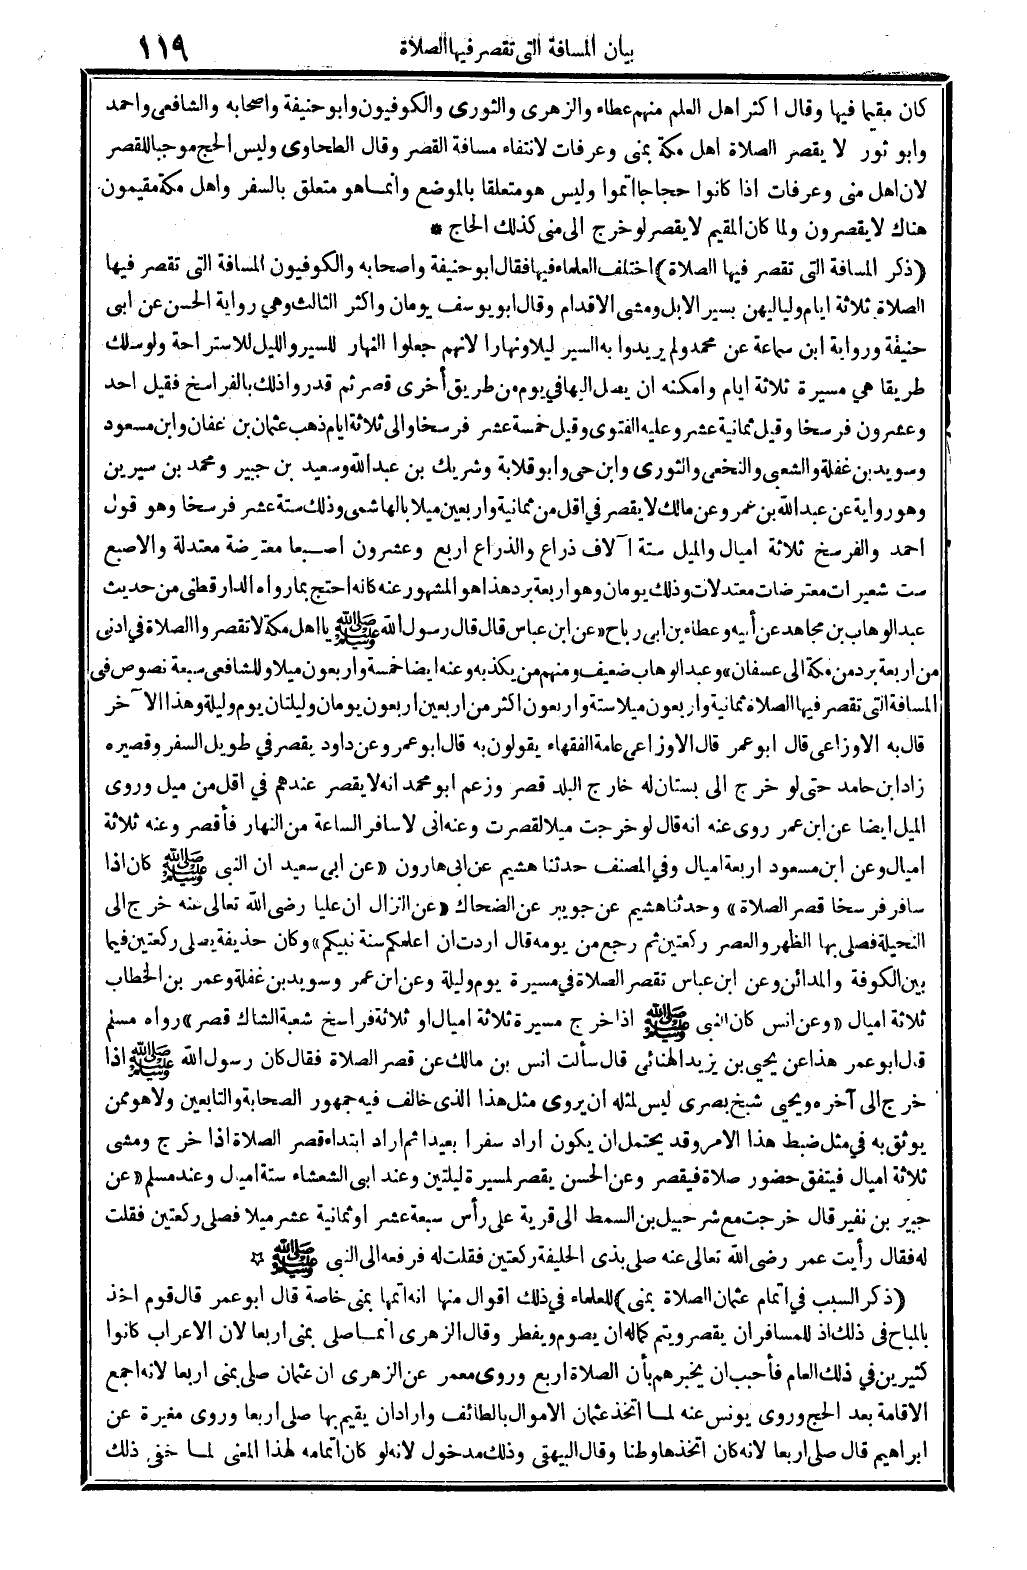 بيان المسافة التى تقصر فيها الصلاة ١١٩
كان مقيما فيها وقال اكثر اهل العلم منهم عطاء والزهرى والثورى والكوفيون وابو حنيفة واصحابه والشافعى واحمد
وابو ثور لا يقصر الصلاة اهل مكة بمنى وعرفات لانتفاء مسافة القصر وقال الطحاوى وليس الحج موجبا للقصر
لان اهل منى وعرفات اذا كانوا حجاجا اتموا وليس هو متعلقا بالموضع وانما هو متعلق بالسفر واهل مكة مقيمون
هناك لا يقصرون ولما كان المقيم لا يقصر لو خرج الى منى كذلك الحاج *
(ذكر المسافة التى تقصر فيها الصلاة) اختلف العلماء فيها فقال ابو حنيفة واصحابه والكوفيون المسافة التى تقصر فيها
الصلاة ثلاثة ايام ولياليهن بسير الابل ومشى الاقدام وقال ابو يوسف يومان واكثر الثالث وهي رواية الحسن عن ابى
حنيفة ورواية ابن سماعة عن محمد ولم يريدوا به السير ليلا ونهارا لانهم جعلوا النهار للسير والليل للاستراحة ولو سلك
طريقا هي مسيرة ثلاثة ايام وامكنه ان يصل اليها في يوم من طريق أخرى قصر ثم قدروا ذلك بالفراسخ فقيل احد
وعشرون فرسخا وقيل ثمانية عشر وعليه الفتوى وقيل خمسة عشر فرسخا والى ثلاثة ايام ذهب عثمان بن عفان وابن مسعود
وسويد بن غفلة والشعبى والنخعى والثورى وابن حى وابو قلابة وشريك بن عبد الله وسعيد بن جبير ومحمد بن سيرين
وهو رواية عن عبد الله بن عمر وعن مالك لا يقصر في اقل من ثمانية واربعين ميلا بالهاشمى وذلك ستة عشر فرسخا وهو قول
احمد والفرسخ ثلاثة اميال والميل ستة آلاف ذراع والذراع اربع وعشرون اصبعا معترضة معتدلة والاصبع
ست شعيرات معترضات معتدلات وذلك يومان وهو اربعة برد هذا هو المشهور عنه كانه احتج بما رواه الدارقطنى من حديث
عبد الوهاب بن مجاهد عن أبيه وعطاء بن ابى رباح «عن ابن عباس قال قال رسول الله ﷺ يا اهل مكة لا تقصروا الصلاة في ادنى
من اربعة برد من مكة الى عسفان» وعبد الوهاب ضعيف ومنهم من يكذبه وعنه ايضا خمسة واربعون ميلا وللشافعى سبعة نصوص فى
المسافة التى تقصر فيها الصلاة ثمانية واربعون ميلا ستة واربعون اكثر من اربعين اربعون يومان وليلتان يوم وليلة وهذا الآخر
قال به الاوزاعى قال ابو عمر قال الاوزاعى عامة الفقهاء يقولون به قال ابو عمر وعن داود يقصر في طويل السفر وقصيره
زاد ابن حامد حتى لو خرج الى بستان له خارج البلد قصر وزعم ابو محمد انه لا يقصر عندهم في اقل من ميل وروى
الميل ايضا عن ابن عمر روى عنه انه قال لو خرجت ميلا لقصرت وعنه انى لاسافر الساعة من النهار فأقصر وعنه ثلاثة
اميال وعن ابن مسعود اربعة اميال وفي المصنف حدثنا هشيم عن ابى هارون «عن ابى سعيد ان النبى ﷺ كان اذا
سافر فرسخا قصر الصلاة» وحدثنا هشيم عن جويبر عن الضحاك «عن النزال ان عليا رضى الله تعالى عنه خرج الى
النخيلة فصلى بها الظهر والعصر ركعتين ثم رجع من يومه قال اردت ان اعلمكم سنة نبيكم» وكان حذيفة يصلى ركعتين فيما
بين الكوفة والمدائن وعن ابن عباس تقصر الصلاة في مسيرة يوم وليلة وعن ابن عمر وسويد بن غفلة وعمر بن الخطاب
ثلاثة اميال «وعن انس كان النبى ﷺ اذا خرج مسيرة ثلاثة اميال او ثلاثة فراسخ شعبة الشاك قصر» رواه مسلم
قال ابو عمر هذا عن يحيى بن يزيد الهنائى قال سألت انس بن مالك عن قصر الصلاة فقال كان رسول الله ﷺ اذا
خرج الى آخره ويحيى شيخ بصرى ليس لمثله ان يروى مثل هذا الذى خالف فيه جمهور الصحابة والتابعين ولا هو ممن
يوثق به في مثل ضبط هذا الامر وقد يحتمل ان يكون اراد سفرا بعيدا ثم اراد ابتداء قصر الصلاة اذا خرج ومشى
ثلاثة اميال فيتفق حضور صلاة فيقصر وعن الحسن يقصر لمسيرة ليلتين وعند ابى الشعشاء ستة اميال وعند مسلم «عن
جبير بن نفير قال خرجت مع شرحبيل بن السمط الى قرية على رأس سبعة عشر او ثمانية عشر ميلا فصلى ركعتين فقلت
له فقال رأيت عمر رضى الله تعالى عنه صلى بذى الحليفة ركعتين فقلت له فرفعه الى النبى ﷺ ☆
(ذكر السبب في اتمام عثمان الصلاة بمنى) للعلماء في ذلك اقوال منها انه اتمها بمنى خاصة قال ابو عمر قال قوم اخذ
بالمباح فى ذلك اذ للمسافر ان يقصر ويتم كماله ان يصوم ويفطر وقال الزهرى انما صلى بمنى اربعا لان الاعراب كانوا
كثيرين في ذلك العام فأحب ان يخبرهم بأن الصلاة اربع وروى معمر عن الزهرى ان عثمان صلى بمنى اربعا لانه اجمع
الاقامة بعد الحج وروى يونس عنه لما اتخذ عثمان الاموال بالطائف واراد ان يقيم بها صلى اربعا وروى مغيرة عن
ابراهيم قال صلى اربعا لانه كان اتخذها وطنا وقال البيهقى وذلك مدخول لانه لو كان اتمامه لهذا المعنى لما خفى ذلك